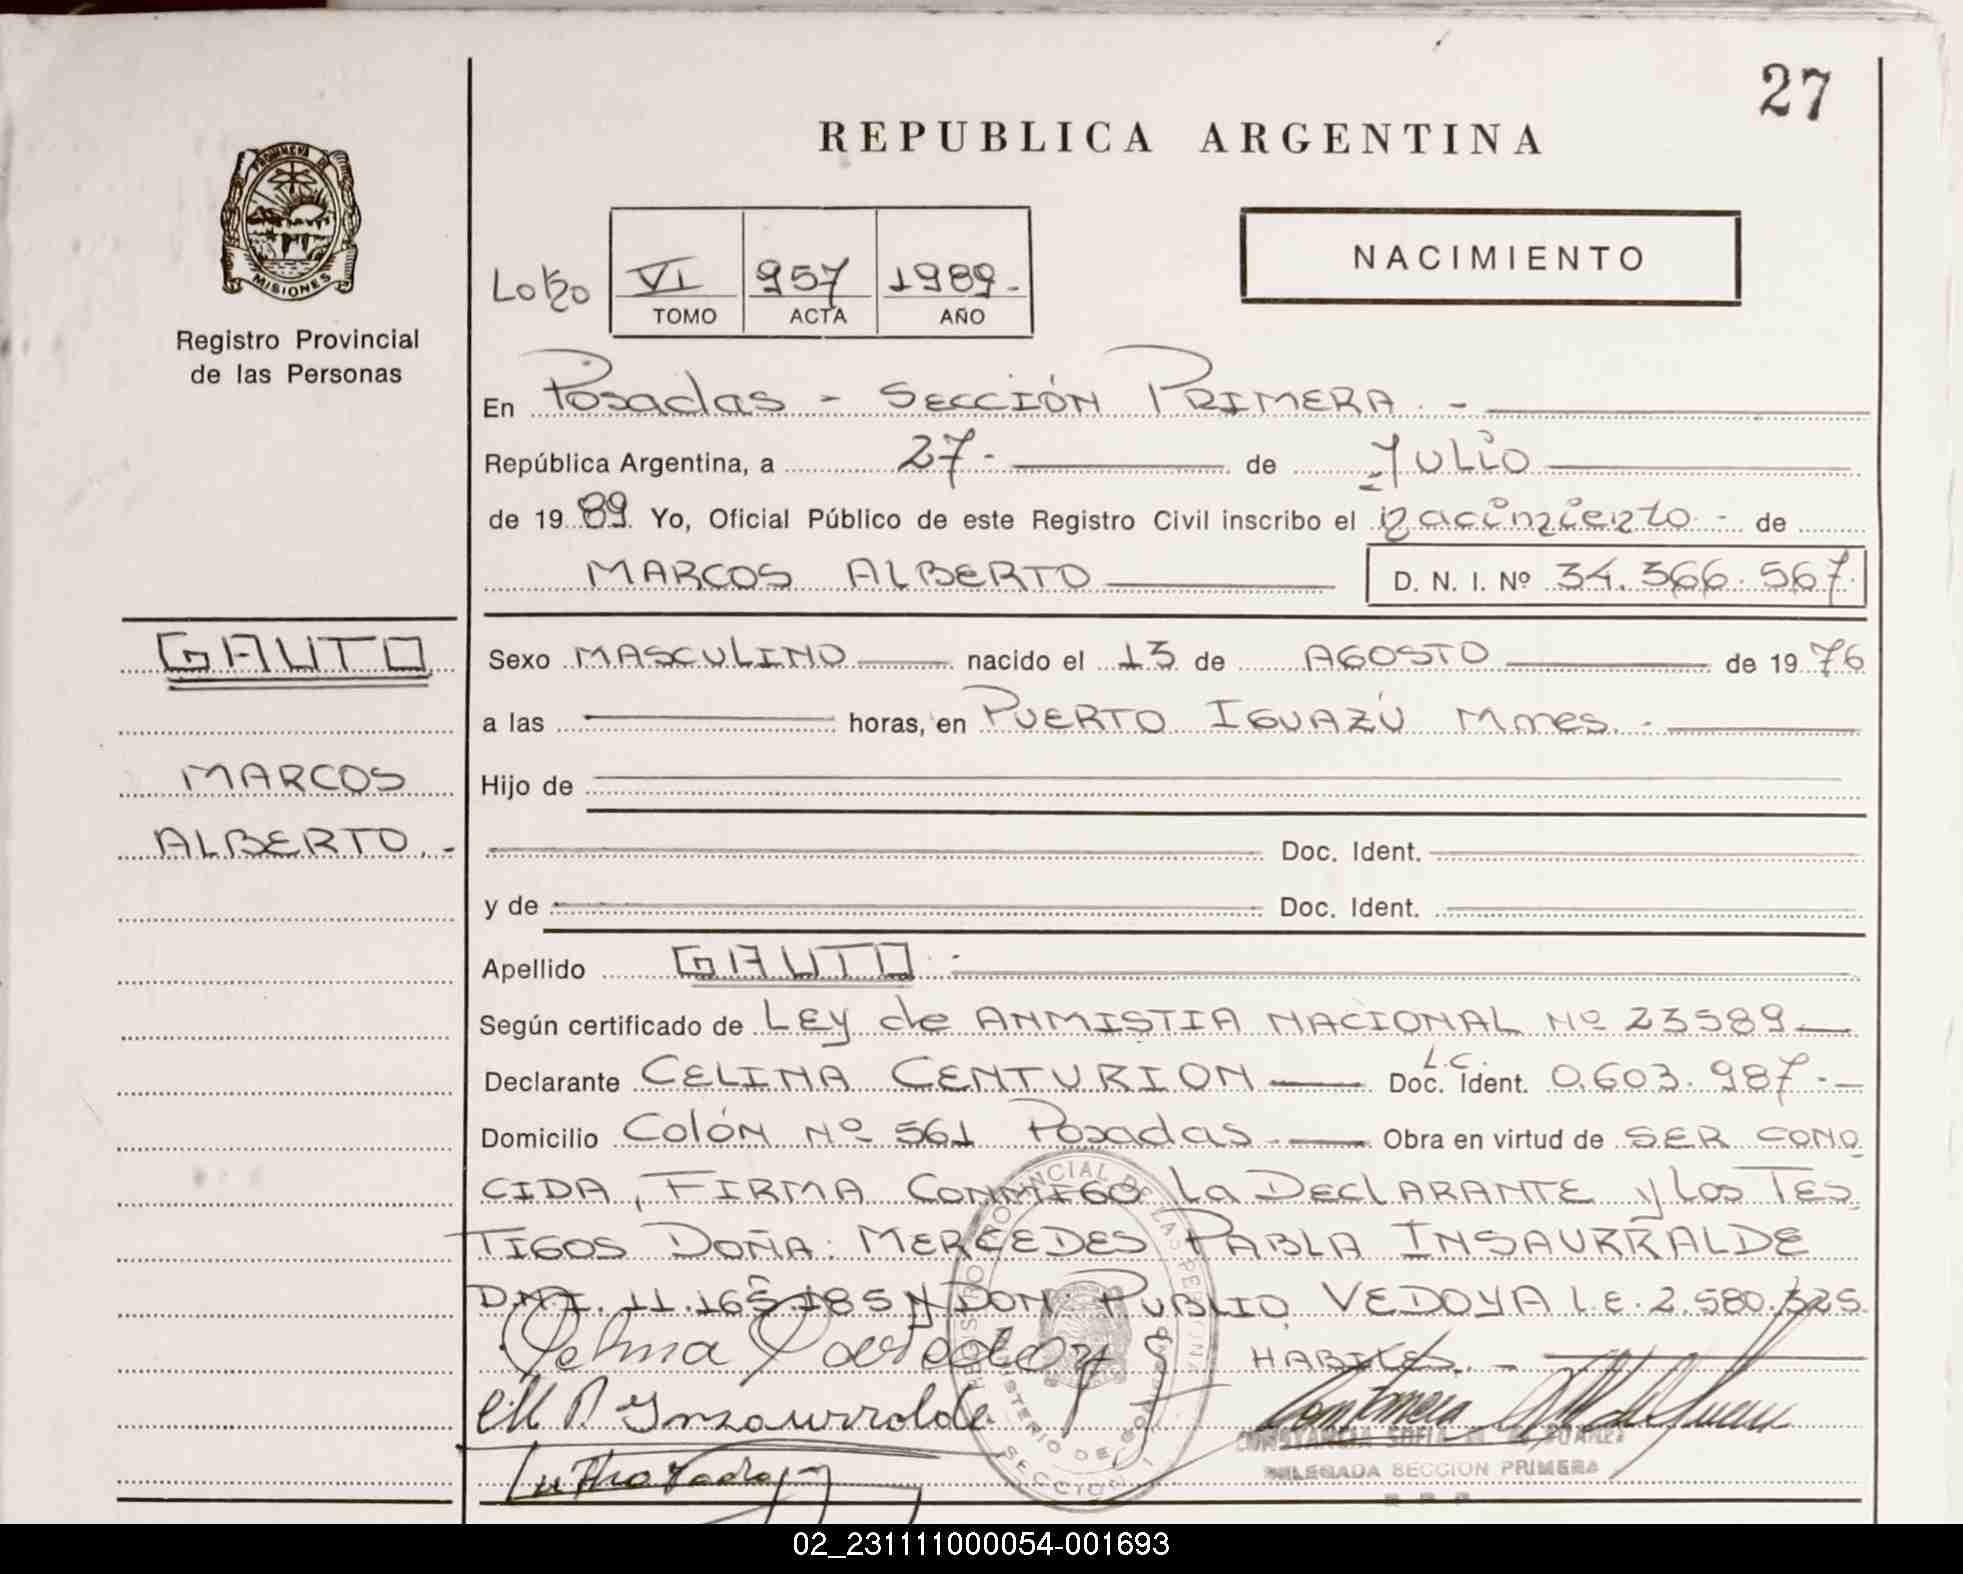 27
REPUBLICA ARGENTINA
PROVINCIA DE
MISIONES
Registro Provincial
de las Personas
NACIMIENTO
VI 957 1989.-
TOMO ACTA AÑO
En Posadas - SECCIÓN PRIMERA.-
República Argentina, a 27.- de Julio
de 1989. Yo, Oficial Público de este Registro Civil inscribo el nacimiento - de
MARCOS ALBERTO D. N. I. Nº 34.366.567.
GAUTO
MARCOS
ALBERTO.-
Sexo MASCULINO nacido el 13 de AGOSTO de 1976
a las horas, en PUERTO IGUAZÚ Mnes.-
Hijo de
Doc. Ident.
y de Doc. Ident.
Apellido GAUTO.-
Según certificado de LEy de ANMISTIA NACIONAL Nº 23589
L.C.
Declarante CELINA CENTURION Doc. Ident. 0.603.987.-
Domicilio Colón Nº 561 Posadas.- Obra en virtud de SER CONO
CIDA, FIRMA CONMIGO La DEClARANTE y Los TES
TIGOS DOÑA: MERCEDES PABLA INSAURRALDE
D.N.I. 11.165.185 y DON PUBLIO VEDOYA L.E. 2.580.325
HABILES.-
M P. Insaurralde
CONSTANCIA SOFIA M. DE SUAREZ
DELEGADA SECCION PRIMERA
R. P. P.
REGISTRO PROVINCIAL DE LAS PERSONAS
MINISTERIO DE GOBIERNO
SECCION 1
02_231111000054-001693